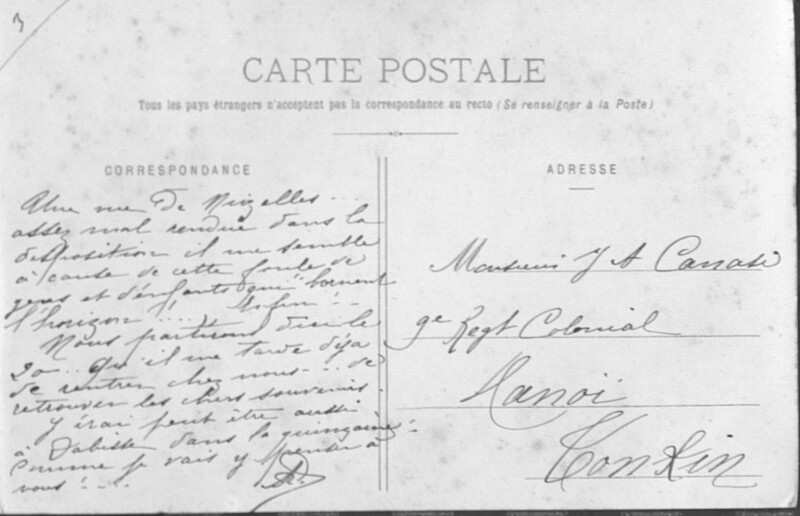 3
CARTE POSTALE
Tous les pays étrangers n'acceptent pas la correspondance au recto (Se renseigner à la Poste)
CORRESPONDANCE
une vue de Nizelles...
assez mal rendue dans la
disposition il me semble
à cause de cette foule de
gens et d'enfants qui bornent
l'horizon!.... Enfin!..
Nous partirons d'ici le
20... Qu'il me tarde déjà
de rentrer chez nous... de
retrouver les chers souvenirs.
J'irai peut être aussi
à dans la quinzaine!
Comme je vais y penser à
vous!...
ADRESSE
Monsieur J A Canasi
9e Regt Colonial
Hanoi
Tonkin